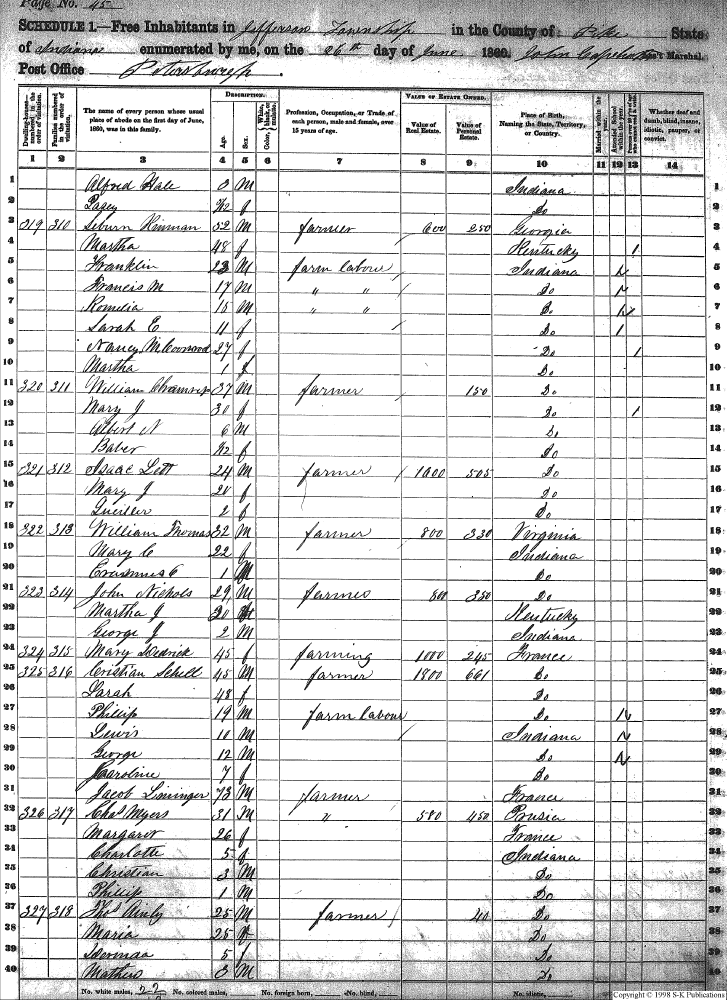 Page No. 45
SCHEDULE 1.—Free Inhabitants in Jefferson Township in the County of Pike State
of Indiana enumerated by me, on the 26th day of June 1860. John
Post Office Petersburgh
DESCRIPTION. VALUE OF ESTATE OWNED.
Dwelling-houses numbered in the order of visitation. Families numbered in the order of visitation. The name of every person whose usual place of abode on the first day of June, 1860, was in this family. Age. Sex. Color, White, black, or mulatto. Profession, Occupation, or Trade of each person, male and female, over 15 years of age. Value of Real Estate. Value of Personal Estate. Place of Birth, Naming the State, Territory, or Country. Married within the year. Attended School within the year. Whether deaf and dumb, blind, insane, idiotic, pauper, or convict.
1 2 3 4 5 6 7 8 9 10 11 12 13 14
1 Alfred Hale 3 M Indiana 1
2 f Do 2
3 319 310 Hinman 52 M farmer 600 250 Georgia 3
4 Martha 48 f Kentucky / 4
5 Franklin 23 M farm labour Indiana 5
6 Francis M 17 M " " / Do 6
7 Romelia 15 M " " Do 7
8 Sarah E 11 f / Do 1 8
9 Nancy 27 f Do / 9
10 Martha 1 f Do 10
11 320 311 William 37 M farmer 150 Do 11
12 Mary J 30 f Do / 12
13 Albert N 6 M Do 13
14 f Do 14
15 321 312 Isaac Lett 24 M farmer / 1000 505 Do 15
16 Mary J 20 f Do 16
17 2 f Do 17
18 322 313 William Thomas 32 M farmer 800 330 Virginia 18
19 Mary C 22 f Indiana 19
20 1 M Do 20
21 323 314 John Nichols 29 M farmer 800 350 Do 21
22 Martha J 20 Kentucky 22
23 George J 2 M Indiana 23
24 324 315 Mary Dedrick 45 f farming 1000 245 France 24
25 325 316 Cristian Schell 45 M farmer 1800 661 Do 25
26 Sarah 48 f Do 26
27 Phillip 19 M farm labour Do 27
28 Lewis 10 M / Indiana 28
29 George 12 M Do 29
30 Caroline 7 f Do 30
31 Jacob Lininger 73 M farmer France 31
32 326 317 Chas Myers 31 M " 580 450 Prusia 32
33 Margaret 26 f France 33
34 Charlotte 5 f Indiana 34
35 Christian 3 M Do 35
36 Phillip 1 M Do 36
37 327 318 Thos Ainly 25 M farmer / 40 Do 37
38 Maria 25 f Do 38
39 5 f Do 39
40 Mathew 3 M Do 40
No. white males, 22 No. colored males, No. foreign born, No. blind, No. idiotic,
Copyright © 1998 S-K Publications